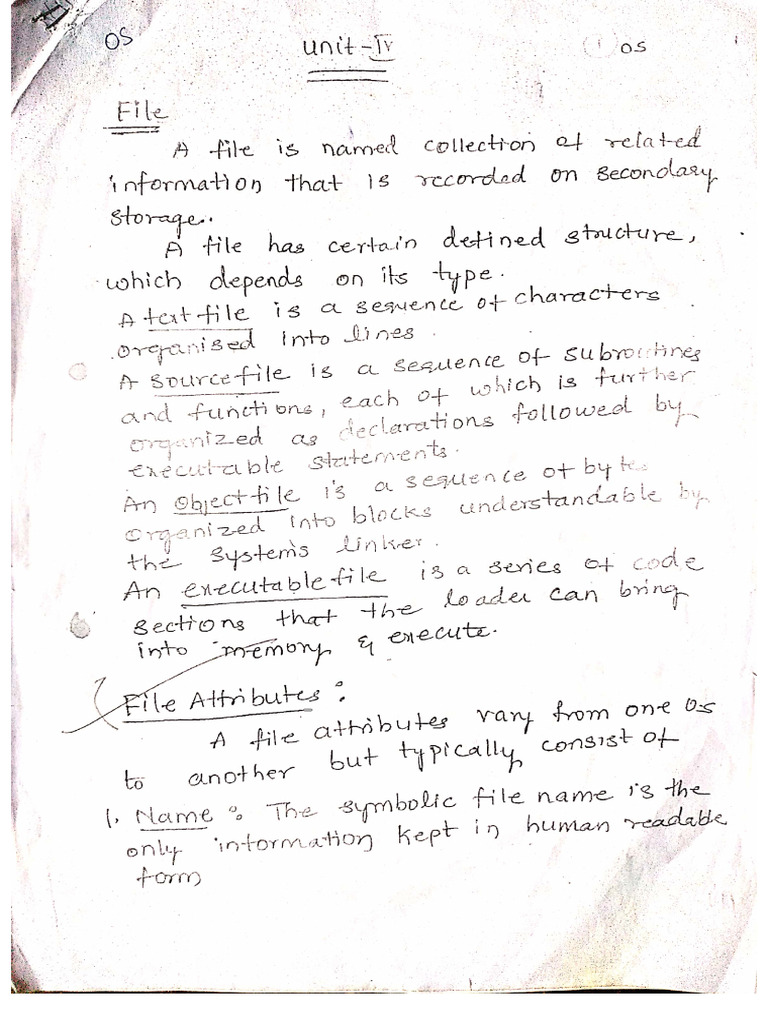 OS
Unit-IV
1 OS
File
A file is named collection of related
information that is recorded on secondary
storage..
A file has certain defined structure,
which depends on its type.
A text file is a sequence of characters
organised into lines.
A source file is a sequence of subroutines
and functions, each of which is further
organized as declarations followed by
executable statements.
An object file is a sequence of bytes
organized into blocks understandable by
the system's linker.
An executable file is a series of code
sections that the loader can bring
into memory & execute.
File Attributes:
A file attributes vary from one Os
to another but typically consist of
1. Name: The symbolic file name is the
only information kept in human readable
form